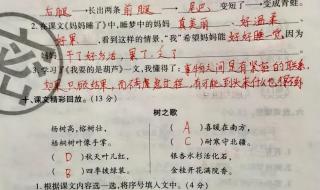 后腿→长出两条前腿→尾巴变短了→变成青蛙。
2. 在课文《妈妈睡了》中,睡梦中的妈妈真美丽、好温柔
好累,看到这样的情景,"我"希望妈妈能好好睡一觉,因为
妈干了好多活,累了,乏了
3. 学习了《我要的是葫芦》一文,我懂得了:事物之间是有紧密的联系,
如果只顾结果,而不考虑过程,有可能到头来什么也得不到
十、课文精彩回放。(13分)
树之歌
杨树高,榕树壮,
梧桐树叶像手掌。
(D)秋天叶儿红,
(B)四季披绿装。
(A)喜暖在南方,
(C)耐寒守北疆。
银杏水杉活化石,
金桂开花满院香。
1. 根据课文内容选一选,将序号填入文中。(4分)
密